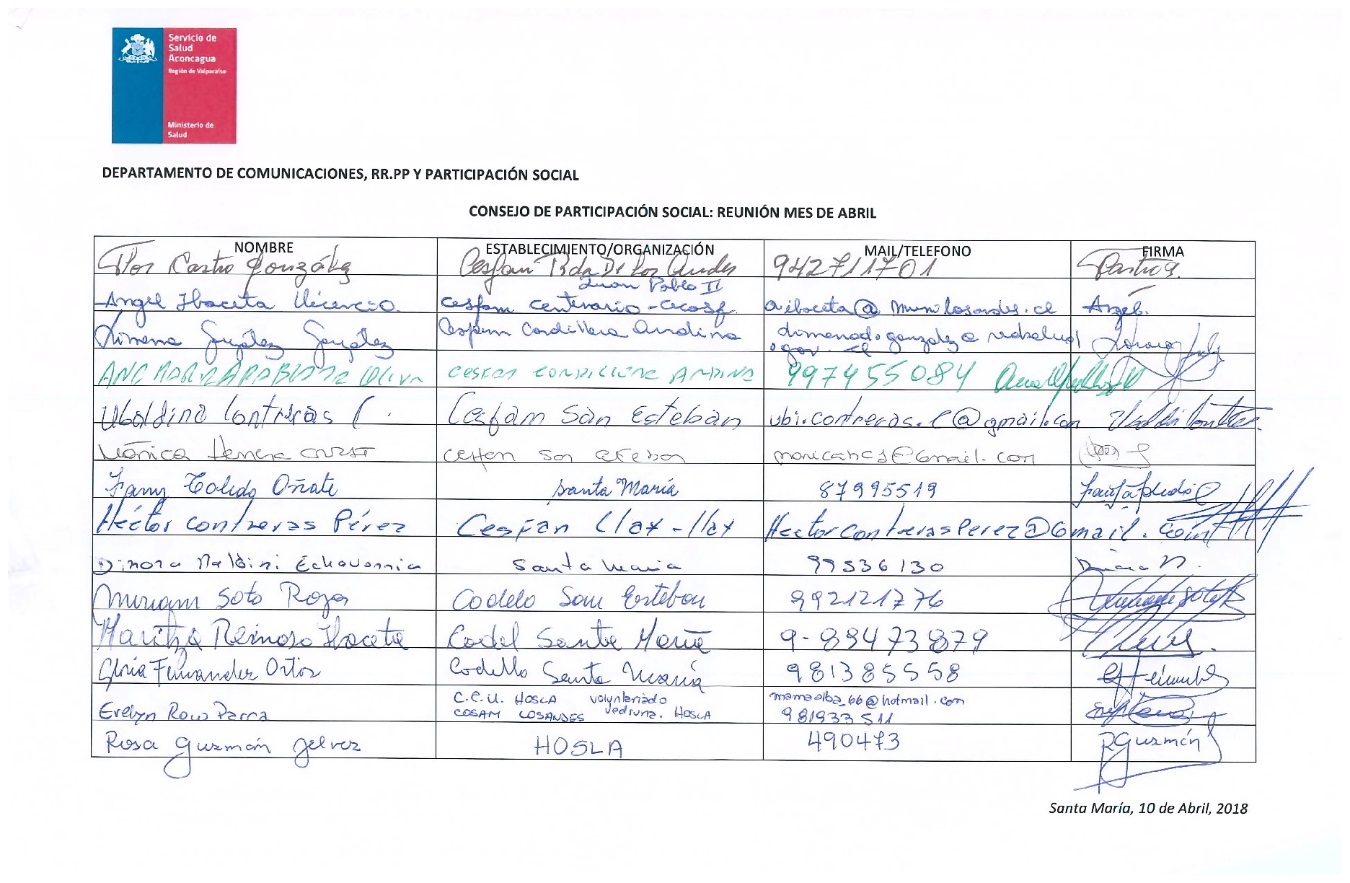 Servicio de
Salud
Aconcagua
Región de Valparaíso
Ministerio de
Salud
DEPARTAMENTO DE COMUNICACIONES, RR.PP Y PARTICIPACIÓN SOCIAL
CONSEJO DE PARTICIPACIÓN SOCIAL: REUNIÓN MES DE ABRIL
NOMBRE ESTABLECIMIENTO/ORGANIZACIÓN MAIL/TELEFONO FIRMA
Flor Castro González Cesfam Rda De Los Andes 942711701 Castro
Juan Pablo II
Angel Ibaceta Cesfam Centenario - Cecosf. aibaceta@munilosandes.cl Angel.
Ximena González González Cesfam Cordillera Andina gonzalez@redsalud
.gov.cl
ANA MARIA Oliva CESFAM CORDILLERA ANDINA 997455084
Ubaldina Contreras C. Cesfam San Esteban ubi.contreras.c@gmail.com
Mónica Herrera Cesfam San Esteban
Fany Toledo Oñate Santa María 87995519
Héctor Contreras Pérez Cesfam Llay-llay HectorContrerasPerez@Gmail.com
Dinora Maldini Echavarria Santa Maria 99536130
Miriam Soto Rojas Codelo San Esteban 992121776
Maritza Reinoso Ibaceta Codel Santa María 9-89473879
Gloria Fernandez Ortiz Codelo Santa María 981385558
C.C.U. HOSLA voluntariado mamaalba_66@hotmail.com
Evelyn Parra COSAM LOSANDES HOSLA 981933511
Rosa Guzmán Gelvez HOSLA 490473 RGuzmán
Santa María, 10 de Abril, 2018